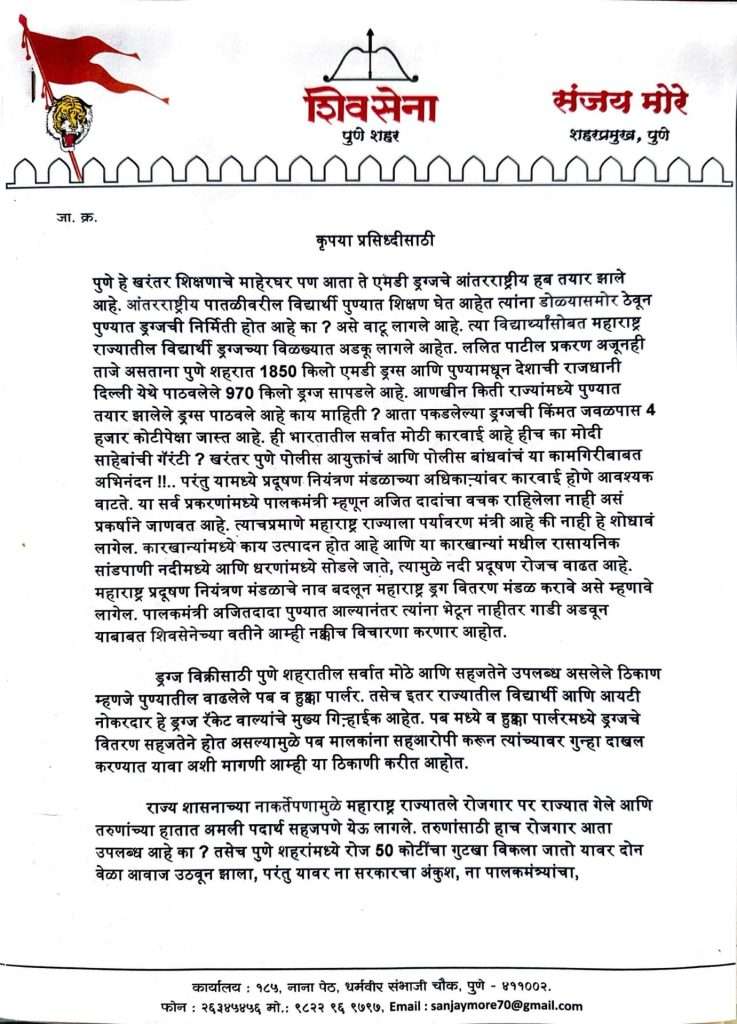 शिवसेना
पुणे शहर
संजय मोरे
शहरप्रमुख, पुणे
जा. क्र.
कृपया प्रसिध्दीसाठी
पुणे हे खरंतर शिक्षणाचे माहेरघर पण आता ते एमडी ड्रग्जचे आंतरराष्ट्रीय हब तयार झाले
आहे. आंतरराष्ट्रीय पातळीवरील विद्यार्थी पुण्यात शिक्षण घेत आहेत त्यांना डोळयासमोर ठेवून
पुण्यात ड्रग्जची निर्मिती होत आहे का ? असे वाटू लागले आहे. त्या विद्यार्थ्यांसोबत महाराष्ट्र
राज्यातील विद्यार्थी ड्रग्जच्या विळख्यात अडकू लागले आहेत. ललित पाटील प्रकरण अजूनही
ताजे असताना पुणे शहरात 1850 किलो एमडी ड्रग्स आणि पुण्यामधून देशाची राजधानी
दिल्ली येथे पाठवलेले 970 किलो ड्रग्ज सापडले आहे. आणखीन किती राज्यांमध्ये पुण्यात
तयार झालेले ड्रग्स पाठवले आहे काय माहिती ? आता पकडलेल्या ड्रग्जची किंमत जवळपास 4
हजार कोटीपेक्षा जास्त आहे. ही भारतातील सर्वात मोठी कारवाई आहे हीच का मोदी
साहेबांची गॅरंटी ? खरंतर पुणे पोलीस आयुक्तांचं आणि पोलीस बांधवांचं या कामगिरीबाबत
अभिनंदन !!.. परंतु यामध्ये प्रदूषण नियंत्रण मंडळाच्या अधिकाऱ्यांवर कारवाई होणे आवश्यक
वाटते. या सर्व प्रकरणांमध्ये पालकमंत्री म्हणून अजित दादांचा वचक राहिलेला नाही असं
प्रकर्षाने जाणवत आहे. त्याचप्रमाणे महाराष्ट्र राज्याला पर्यावरण मंत्री आहे की नाही हे शोधावं
लागेल. कारखान्यांमध्ये काय उत्पादन होत आहे आणि या कारखान्यां मधील रासायनिक
सांडपाणी नदीमध्ये आणि धरणांमध्ये सोडले जाते, त्यामुळे नदी प्रदूषण रोजच वाढत आहे.
महाराष्ट्र प्रदूषण नियंत्रण मंडळाचे नाव बदलून महाराष्ट्र ड्रग वितरण मंडळ करावे असे म्हणावे
लागेल. पालकमंत्री अजितदादा पुण्यात आल्यानंतर त्यांना भेटून नाहीतर गाडी अडवून
याबाबत शिवसेनेच्या वतीने आम्ही नक्कीच विचारणा करणार आहोत.
ड्रग्ज विक्रीसाठी पुणे शहरातील सर्वात मोठे आणि सहजतेने उपलब्ध असलेले ठिकाण
म्हणजे पुण्यातील वाढलेले पब व हुक्का पार्लर. तसेच इतर राज्यातील विद्यार्थी आणि आयटी
नोकरदार हे ड्रग्ज रॅकेट वाल्यांचे मुख्य गिऱ्हाईक आहेत. पब मध्ये व हुक्का पार्लरमध्ये ड्रग्जचे
वितरण सहजतेने होत असल्यामुळे पब मालकांना सहआरोपी करून त्यांच्यावर गुन्हा दाखल
करण्यात यावा अशी मागणी आम्ही या ठिकाणी करीत आहोत.
राज्य शासनाच्या नाकर्तेपणामुळे महाराष्ट्र राज्यातले रोजगार पर राज्यात गेले आणि
तरुणांच्या हातात अमली पदार्थ सहजपणे येऊ लागले. तरुणांसाठी हाच रोजगार आता
उपलब्ध आहे का ? तसेच पुणे शहरांमध्ये रोज 50 कोटींचा गुटखा विकला जातो यावर दोन
वेळा आवाज उठवून झाला, परंतु यावर ना सरकारचा अंकुश, ना पालकमंत्र्यांचा,
कार्यालय : १८५, नाना पेठ, धर्मवीर संभाजी चौक, पुणे - ४११००२.
फोन : २६३४५४५६ मो.: ९८२२ ९६ ९७९७, Email : sanjaymore70@gmail.com